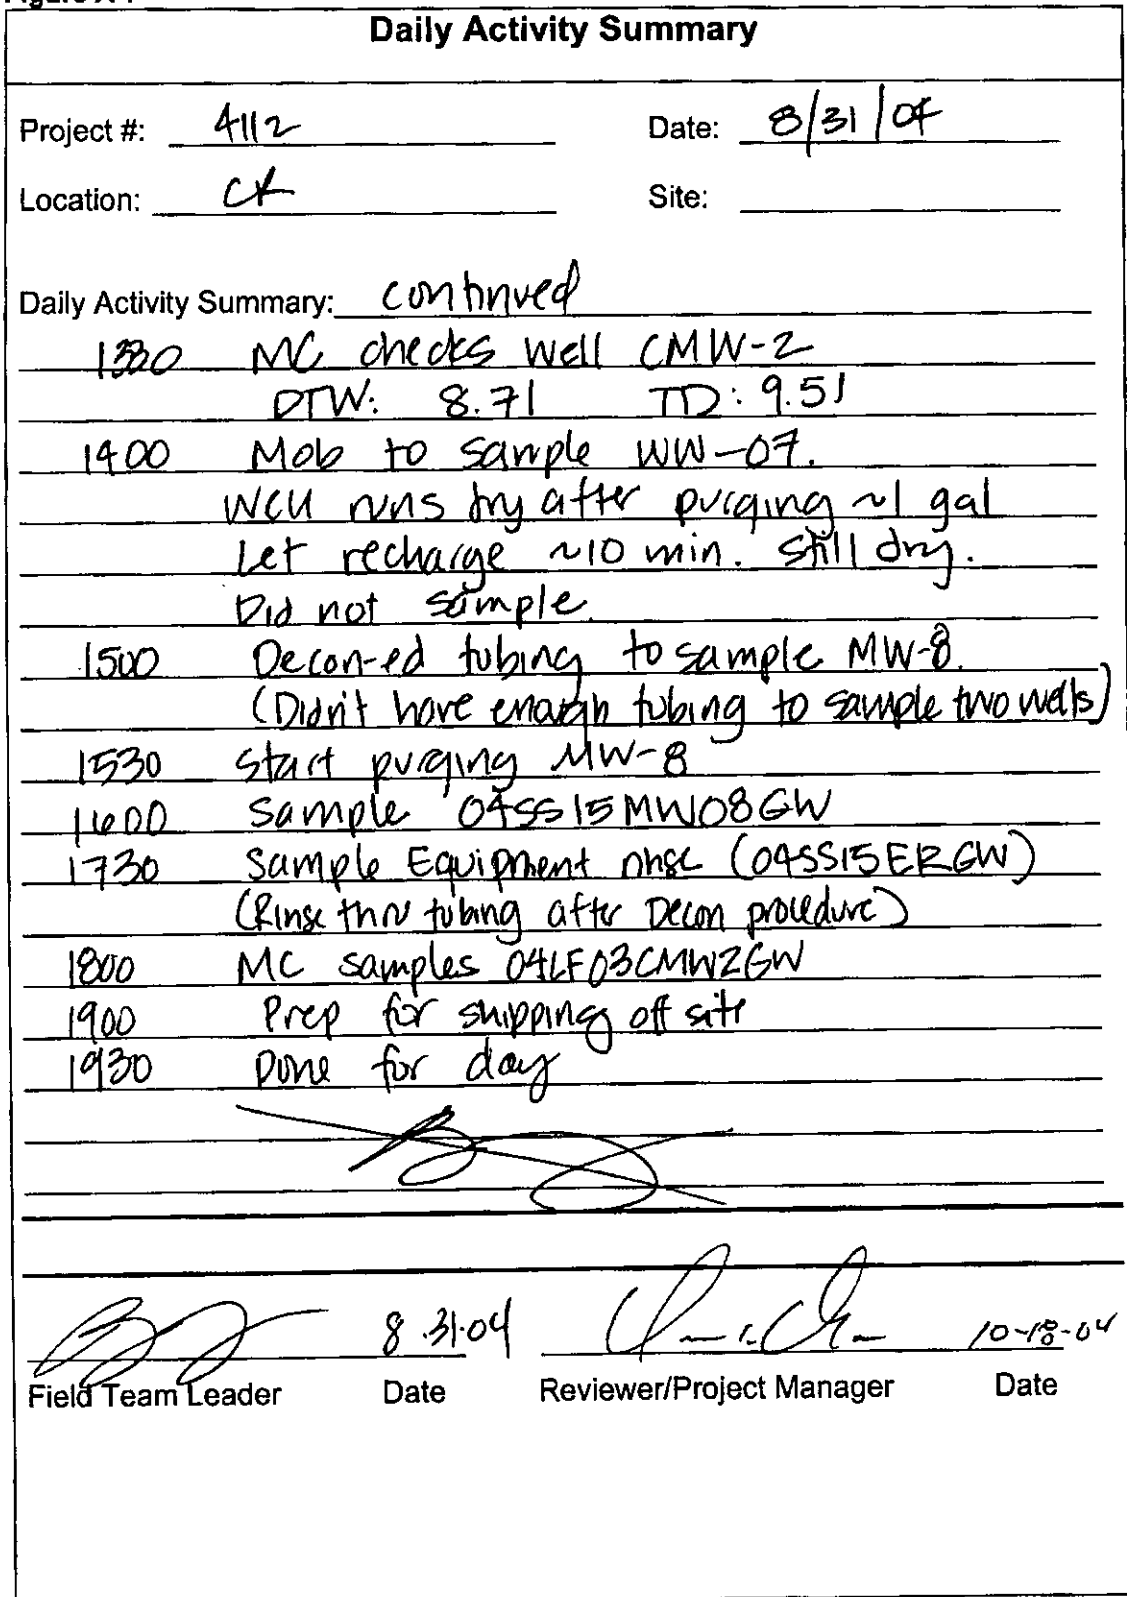 Daily Activity Summary
Project #: 4112 Date: 8/31/04
Location: CK Site:
Daily Activity Summary: continued
1330 MC checks well CMW-2
DTW: 8.71 TD: 9.51
1400 Mob to sample WW-07.
Well runs dry after purging ~1 gal
Let recharge ~10 min. Still dry.
Did not sample.
1500 Decon-ed tubing to sample MW-8.
(Didn't have enough tubing to sample two wells)
1530 Start purging MW-8
1600 Sample 04SS15MW08GW
1730 Sample Equipment rinse (04SS15ERGW)
(Rinse thru tubing after Decon procedure)
1800 MC samples 04LF03CMW2GW
1900 Prep for shipping off site
1930 Done for day
8.31.04 10-18-04
Field Team Leader Date Reviewer/Project Manager Date